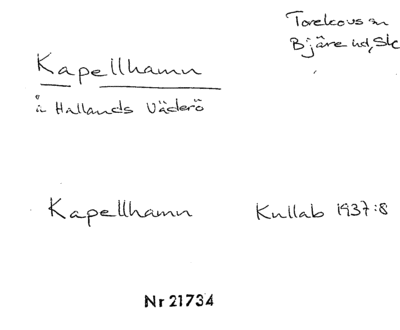 Torekovs sn
Bjäre hd, Sk
Kapellhamn
å Hallands Väderö
Kapellhamn Kullab 1937:8
Nr 21734